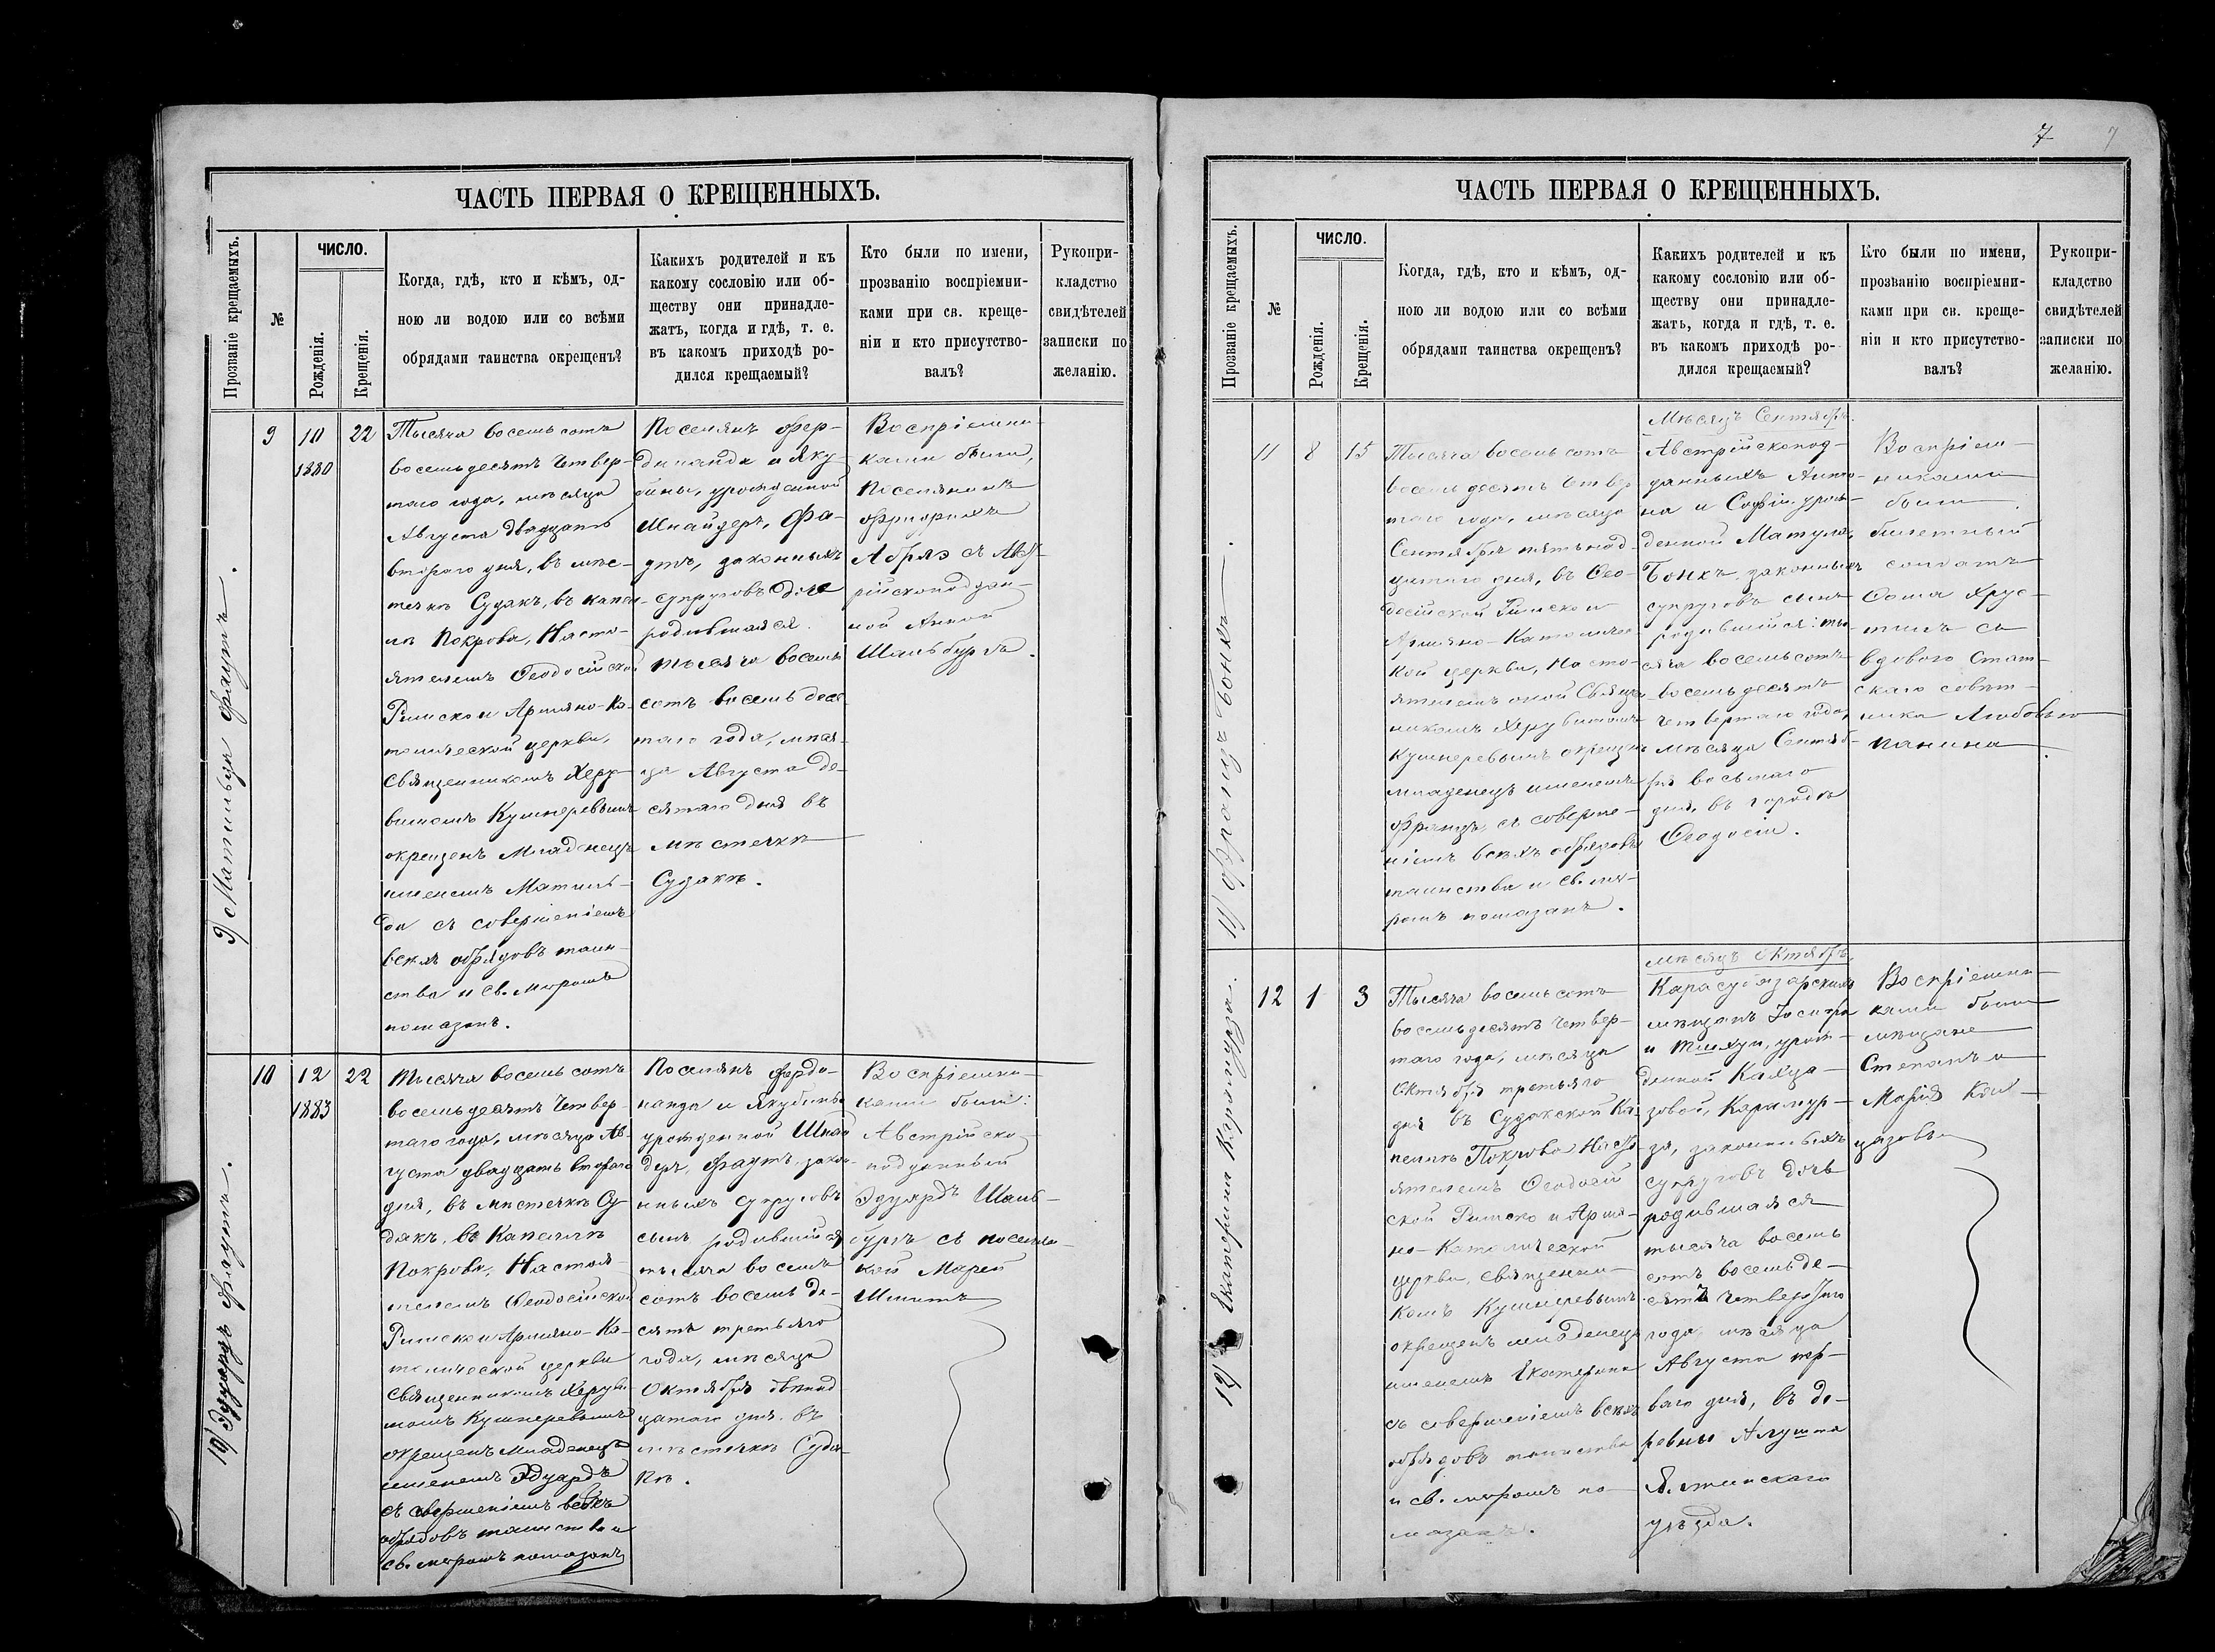 7
7
ЧАСТЬ ПЕРВАЯ О КРЕЩЕННЫХЪ.
Прозваніе крещаемыхъ.
№
ЧИСЛО.
Рожденія.
Крещенія.
Когда, гдѣ, кто и кѣмъ, од-
ною ли водою или со всѣми
обрядами таинства окрещенъ?
Какихъ родителей и къ
какому сословію или об-
ществу они принадле-
жатъ, когда и гдѣ, т. е.
въ какомъ приходѣ ро-
дился крещаемый?
Кто были по имени,
прозванію воспріемни-
ками при св. креще-
ніи и кто присутство-
валъ?
Рукопри-
кладство
свидѣтелей
записки по
желанію.
9) Матильда Фаутъ.
9
10
1880
22
Тысяча восемьсотъ
восемьдесятъ четвер-
таго года, мѣсяца
Августа двадцать
втораго дня, въ мѣс-
течкѣ Судакъ, въ капел-
лѣ Покрова, Насто-
ятелемъ Ѳеодосійской
Римско и Армяно-Ка-
толической церкви,
Священникомъ Херу-
вимомъ Кушнеревымъ
окрещенъ Младенецъ
именемъ Матиль-
да съ совершеніемъ
всѣхъ обрядовъ таин-
ства и св. мѵромъ
помазанъ.
Поселянъ Фер-
динанда и Яку-
бины, урожденной
Шнайдеръ, Фа-
утъ, законныхъ
супруговъ дочь
родившаяся
тысяча восемь
сотъ восемь деся-
таго года, мѣся-
ца Августа де-
сятаго дня въ
мѣстечкѣ
Судакѣ.
Воспріемни-
ками были,
Поселянинъ
Фридрихъ
Абряз съ Авст-
рійскоподдан-
ной Анной
Шальбургъ.
10) Эдуардъ Фаутъ.
10
12
1883
22
Тысяча восемьсотъ
восемьдесятъ четвер-
таго года, мѣсяца Ав-
густа двадцать втораго
дня, въ мѣстечкѣ Су-
дакъ, въ Капеллѣ
Покрова, Настоя-
телемъ Ѳеодосійской
Римско и Армяно-Ка-
толической церкви
Священникомъ Херуви-
момъ Кушнеревымъ
окрещенъ Младенецъ
именемъ Эдуардъ
съ совершеніемъ всѣхъ
обрядовъ таинства и
св. мѵромъ помазанъ
Поселянъ Ферди-
нанда и Якубины
урожденной Шнай-
деръ, Фаутъ, зако-
нныхъ супруговъ
сынъ родившійся
тысяча восемь
сотъ восемь де-
сятъ третьяго
года, мѣсяца
Октября двѣнад-
цатаго дня въ
мѣстечкѣ Суда-
кѣ.
Воспріемни-
ками были:
Австрійско-
подданный
Эдуардъ Шаль-
бургъ съ поселян-
кой Маріей
Шмитъ
ЧАСТЬ ПЕРВАЯ О КРЕЩЕННЫХЪ.
Прозваніе крещаемыхъ.
№
ЧИСЛО.
Рожденія.
Крещенія.
Когда, гдѣ, кто и кѣмъ, од-
ною ли водою или со всѣми
обрядами таинства окрещенъ?
Какихъ родителей и къ
какому сословію или об-
ществу они принадле-
жатъ, когда и гдѣ, т. е.
въ какомъ приходѣ ро-
дился крещаемый?
Кто были по имени,
прозванію воспріемни-
ками при св. креще-
ніи и кто присутство-
валъ?
Рукопри-
кладство
свидѣтелей
записки по
желанію.
11) Францъ Бонкъ.
11
8
15
Тысяча восемьсотъ
восемьдесятъ четвер-
таго года, мѣсяца
Сентября пятьнад-
цатаго дня, въ Ѳео-
досійской Римско и
Армяно-Католичес-
кой церкви, Насто-
ятелемъ оной Священ-
никомъ Херувимомъ
Кушнеревымъ окрещенъ
младенецъ именемъ
Францъ, съ соверше-
ніемъ всѣхъ обрядовъ
таинства и св. мѵ-
ромъ помазанъ.
Мѣсяцъ Сентябрь.
Австрійскопод-
данныхъ Анто-
на и Софіи, урож-
денной Матула,
Бонкъ, законныхъ
супруговъ сынъ
родившійся: ты-
сяча восемьсотъ
восемьдесятъ
четвертаго года,
мѣсяца Сентяб-
ря восьмаго
дня, въ городѣ
Ѳеодосіи.
Воспріем-
никами
были
билетный
солдатъ
Ѳома Хрус-
тинъ съ
вдовою Стат-
скаго совѣт-
ника Любовью
Паниной
12) Екатерина Карамурза.
12
1
3
Тысяча восемьсотъ
восемьдесятъ четвер-
таго года, мѣсяца
Октября третьяго
дня въ Судакской Ка-
пеллѣ Покрова Насто-
ятелемъ Ѳеодосій-
ской Римско и Армя-
но-Католической
церкви, священни-
комъ Кушнеревымъ
окрещенъ младенецъ
именемъ Екатерина
съ совершеніемъ всѣхъ
обрядовъ таинства
и св. мѵромъ по-
мазанъ.
Мѣсяцъ Октябрь
Карасубазарскихъ
мѣщанъ Іосифа
урож-
денной
зовой, Карамур-
за, законныхъ
супруговъ дочь
родившаяся
тысяча восемь
сотъ восемьде-
сятъ четвертаго
года, мѣсяца
Августа пер-
ваго дня, въ де-
ревнѣ Алушта
Ялтинскаго
уѣзда.
Воспріемни-
ками были
мѣщане
Степанъ и
Марія